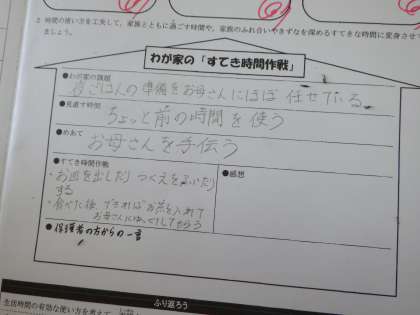 2 時間の使い方を工夫して，家族とともに過ごす時間や，家族のふれ合いやきずなを深めるすてきな時間に変身させて
ましょう。
わが家の「すてき時間作戦」
●わが家の課題
ごはんの準備をお母さんにほぼ任せている
●見直す時間
ちょっと前の時間を使う
●めあて
お母さんを手伝う
●すてき時間作戦
・お皿を出したり つくえをふいたり
する
・食べた後、できればお茶を入れて
お母さんにゆっくりしてもらう
●感想
●保護者の方からの一言
ふり返ろう
生活時間の有効な使い方を考えて